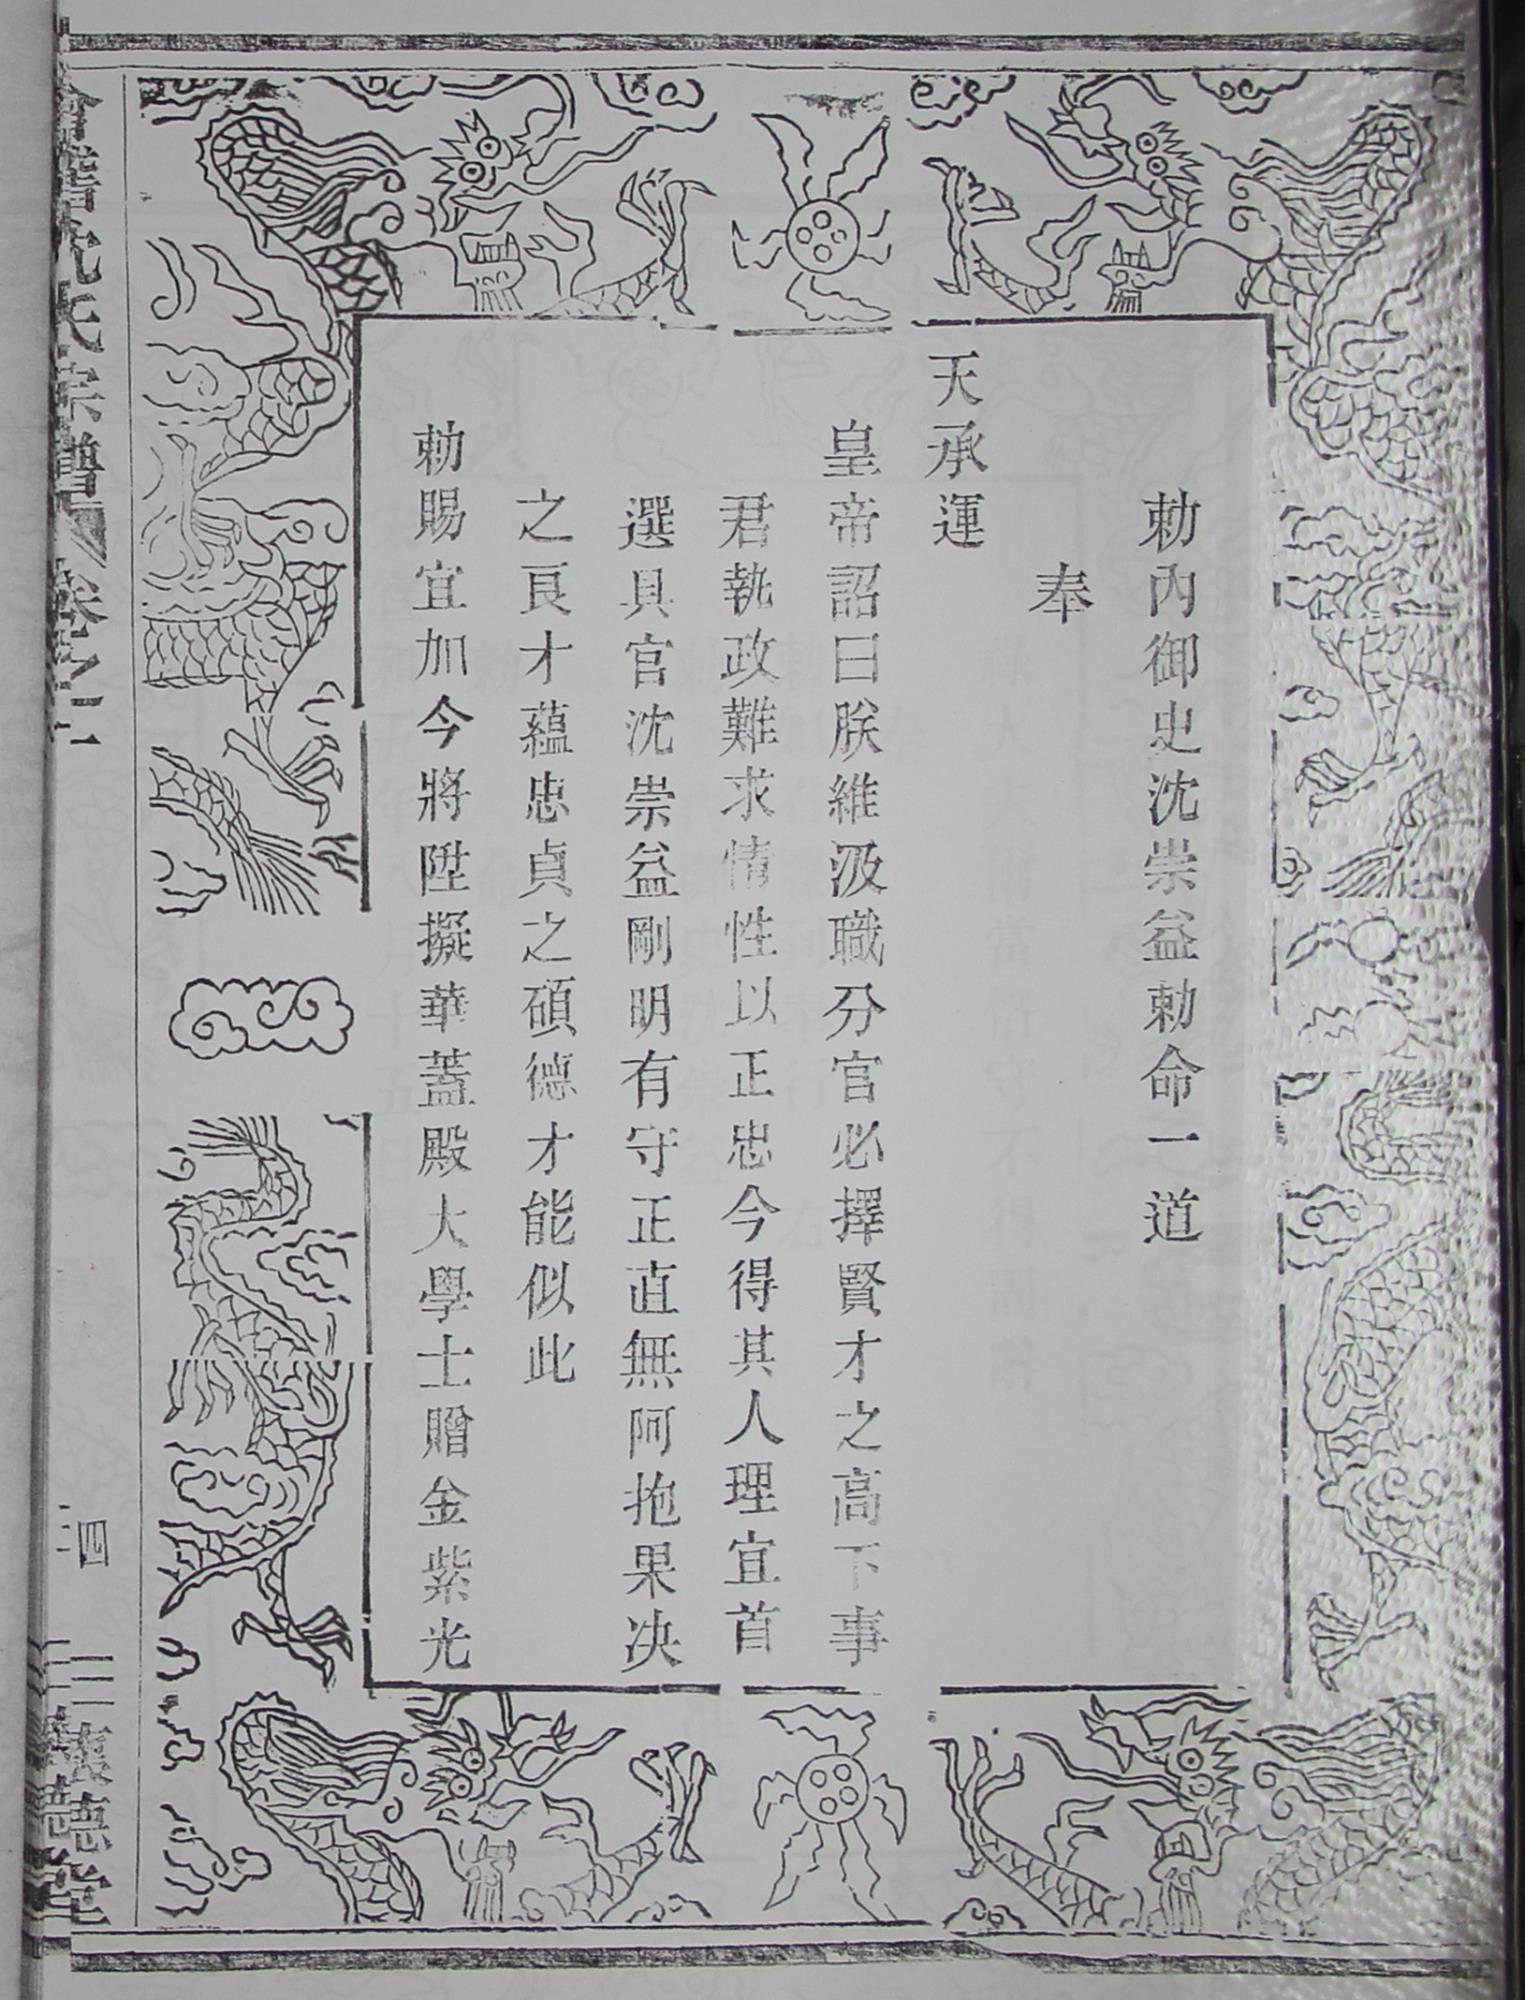 勅內御史沈崇益勅命一道
奉
天承運
皇帝詔曰朕維汲職分官必擇賢才之高下事
君執政難求情性以正忠今得其人理宜首
選具官沈崇益剛明有守正直無阿抱果决
之良才蘊忠貞之碩德才能似此
勅賜宜加今將陞擬華蓋殿大學士贈金紫光
沈氏宗譜 卷之
四
三善堂